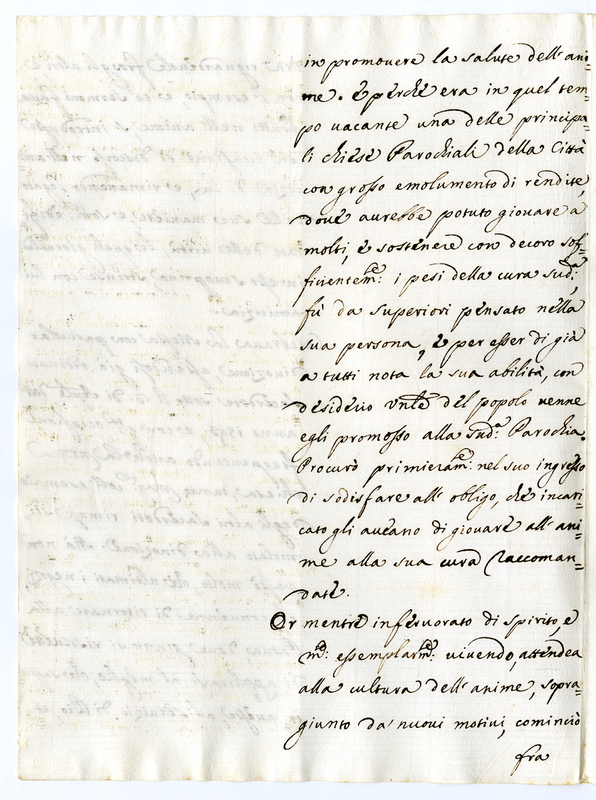 in promouere la salute dell'ani=
me. è perche era in quel tem=
po vacante una delle principa=
li chiese Parochiali della Città
con grosso emolumento di rendite,
dove aurebbe potuto giouare a
molti, è sostenere con decoro sof=
ficientem:te i pesi della cura sud:a,
fù da superiori pensato nella
sua persona, è per esser di già
a tutti nota la sua abilità, con
desiderio unle del popolo uenne
egli promosso alla sud:a Parochia.
Procurò primieram:te nel suo ingresso
di sodisfare all'obligo, che incari=
catogli aueano di giouare all'ani=
me alla sua cura raccoman=
date.
Or mentre infervorato di spirito, e
essemplarm:te uiuendo, attendea
alla cultura dell'anime, sopra=
giunto da nuoui motiui, cominciò
fra